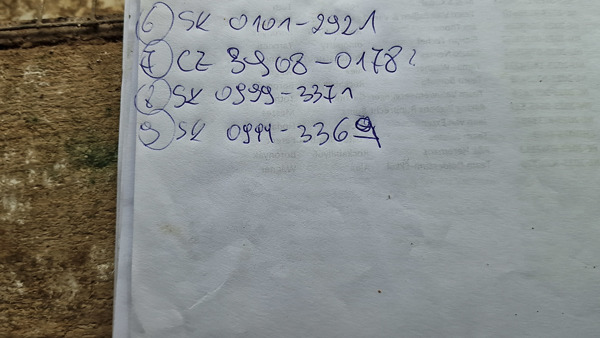 6 SK 0101-2921
7 CZ 9908-0178?
8 SK 0999-3371
9 SK 0999-3369